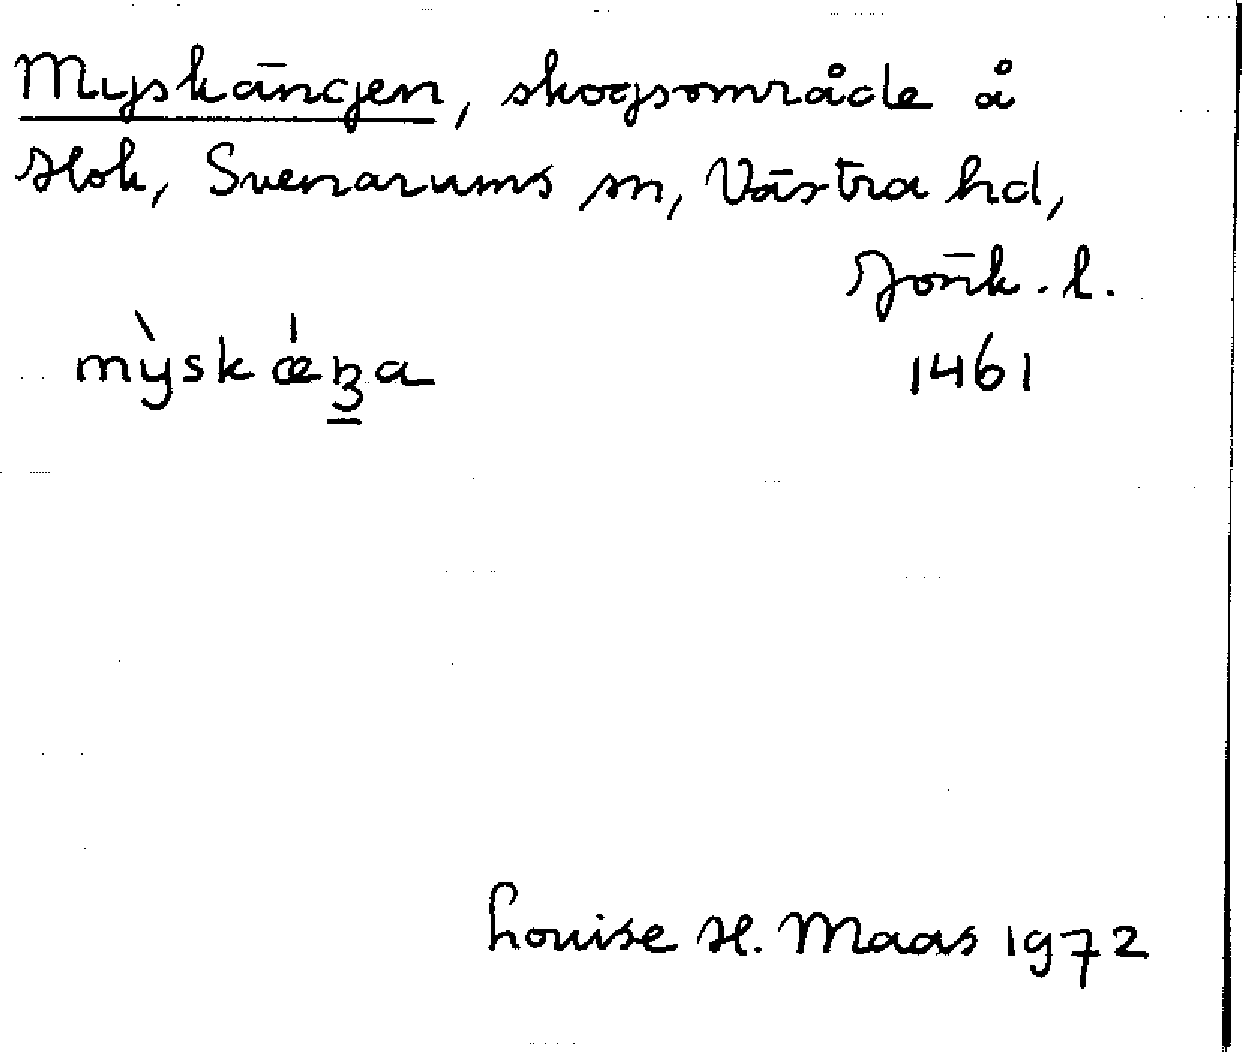 Myskängen, skogsområde å
Hok, Svenarums sn, Västra hd,
Jönk. l.
mỳskǽŋa 1461
Louise H. Maas 1972